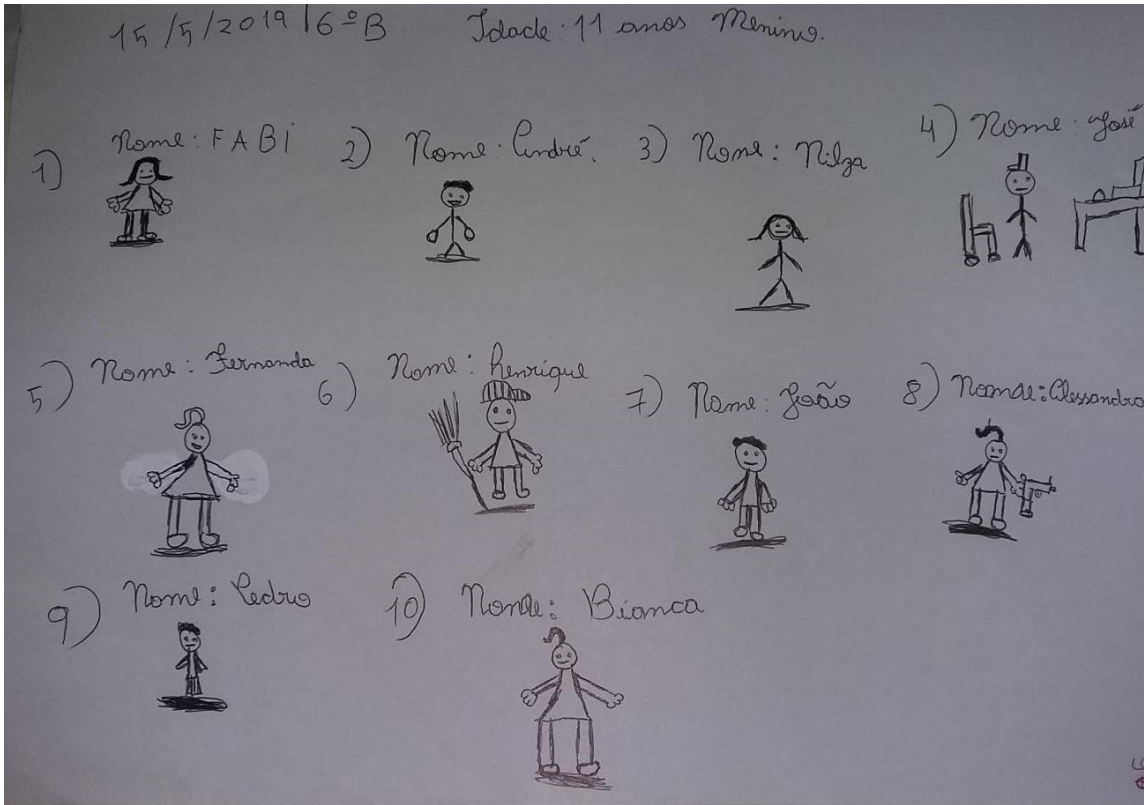 15/5/2019 | 6º B Idade: 11 anos Menino.
1) Nome: FABI
2) Nome: André.
3) Nome: Nilza
4) Nome: José
5) Nome: Fernanda
6) Nome: Henrique
7) Nome: João
8) Nome: Alessandro
9) Nome: Pedro
10) Nome: Bianca